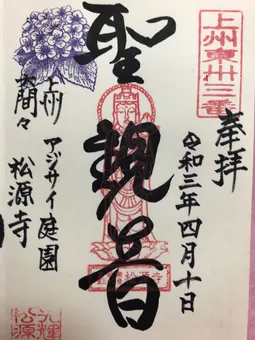 奉拝
上州東卅三番
令和三年四月十日
聖観音
上州
大間々
アジサイ庭園
松源寺